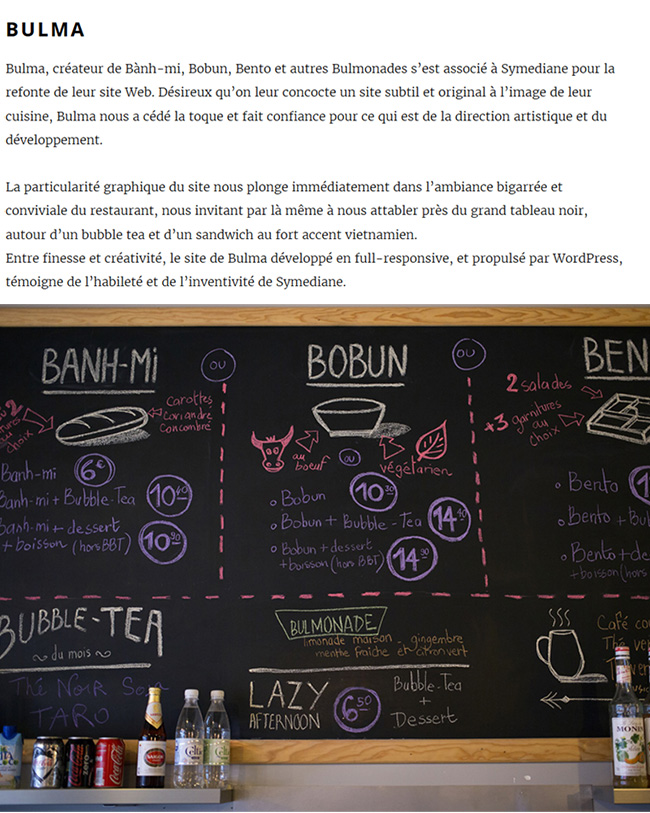 BULMA
Bulma, créateur de Bành-mi, Bobun, Bento et autres Bulmonades s’est associé à Symediane pour la
refonte de leur site Web. Désireux qu’on leur concocte un site subtil et original à l’image de leur
cuisine, Bulma nous a cédé la toque et fait confiance pour ce qui est de la direction artistique et du
développement.
La particularité graphique du site nous plonge immédiatement dans l’ambiance bigarrée et
conviviale du restaurant, nous invitant par là même à nous attabler près du grand tableau noir,
autour d’un bubble tea et d’un sandwich au fort accent vietnamien.
Entre finesse et créativité, le site de Bulma développé en full-responsive, et propulsé par WordPress,
témoigne de l’habileté et de l’inventivité de Symediane.
BANH-Mi
OU
2
au
choix
Carottes
Coriandre
Concombré
Banh-mi 6€
Banh-mi + Bubble-Tea 10
Banh-mi + dessert
+ boisson (hors BBT) 10
BOBUN
OU
au
boeuf
ou
végétarien
Bobun 10
Bobun + Bubble-Tea 14
Bobun + dessert
+ boisson (hors BBT) 14
BEN
2 salades
+3 garnitures
au
choix
Bento
Bento + Bu
Bento + de
+ boisson (hors
BUBBLE-TEA
~ du mois ~
Thé Noir
TARO
BULMONADE
limonade maison - gingembre
menthe fraîche et citron vert
LAZY
AFTERNOON
6.50
Bubble-Tea
+
Dessert
Café
Thé